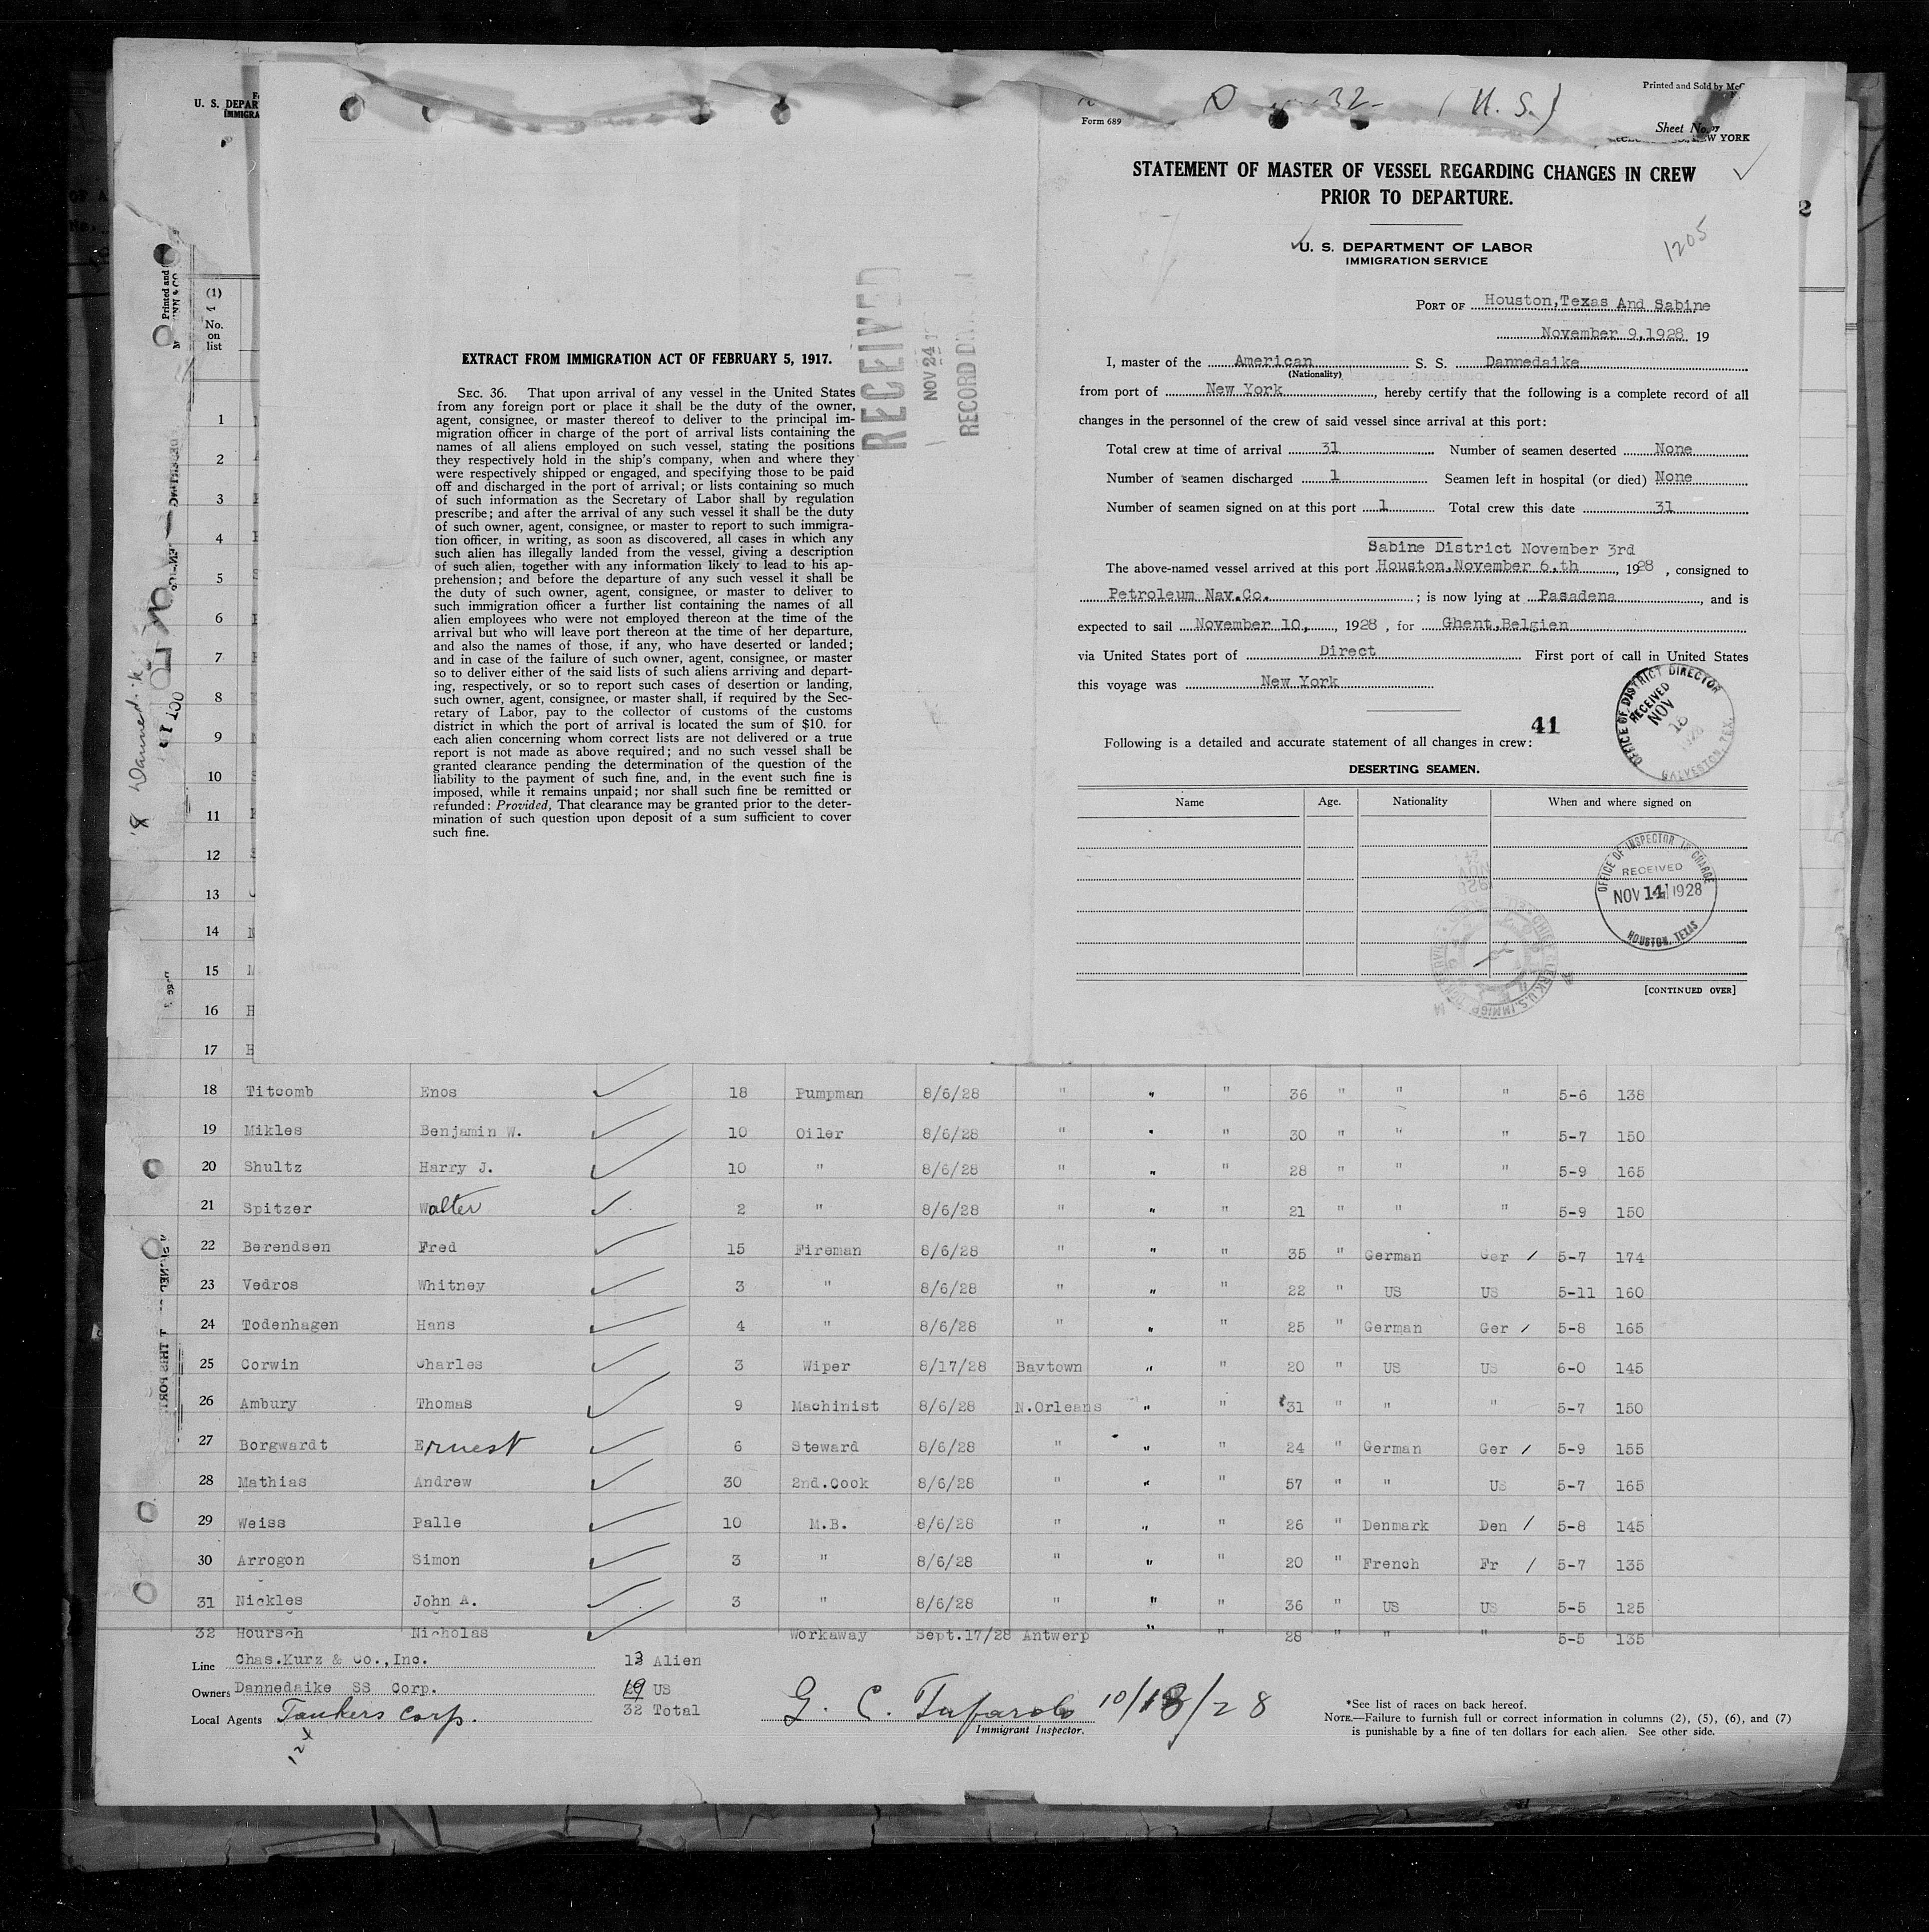 U. S. DEPAR
IMMIGRA
Printed and
(1)
No.
on
list
1
2
3
4
5
6
7
8
9
10
11
12
13
14
15
16
17
EXTRACT FROM IMMIGRATION ACT OF FEBRUARY 5, 1917.
SEC. 36. That upon arrival of any vessel in the United States
from any foreign port or place it shall be the duty of the owner,
agent, consignee, or master thereof to deliver to the principal im-
migration officer in charge of the port of arrival lists containing the
names of all aliens employed on such vessel, stating the positions
they respectively hold in the ship's company, when and where they
were respectively shipped or engaged, and specifying those to be paid
off and discharged in the port of arrival; or lists containing so much
of such information as the Secretary of Labor shall by regulation
prescribe; and after the arrival of any such vessel it shall be the duty
of such owner, agent, consignee, or master to report to such immigra-
tion officer, in writing, as soon as discovered, all cases in which any
such alien has illegally landed from the vessel, giving a description
of such alien, together with any information likely to lead to his ap-
prehension; and before the departure of any such vessel it shall be
the duty of such owner, agent, consignee, or master to deliver to
such immigration officer a further list containing the names of all
alien employees who were not employed thereon at the time of the
arrival but who will leave port thereon at the time of her departure,
and also the names of those, if any, who have deserted or landed;
and in case of the failure of such owner, agent, consignee, or master
so to deliver either of the said lists of such aliens arriving and depart-
ing, respectively, or so to report such cases of desertion or landing,
such owner, agent, consignee, or master shall, if required by the Sec-
retary of Labor, pay to the collector of customs of the customs
district in which the port of arrival is located the sum of $10. for
each alien concerning whom correct lists are not delivered or a true
report is not made as above required; and no such vessel shall be
granted clearance pending the determination of the question of the
liability to the payment of such fine, and, in the event such fine is
imposed, while it remains unpaid; nor shall such fine be remitted or
refunded: Provided, That clearance may be granted prior to the deter-
mination of such question upon deposit of a sum sufficient to cover
such fine.
RECEIVED
NOV 24
RECORD DIV
32 (U. S.)
Printed and Sold by
Form 689
Sheet No.
NEW YORK
STATEMENT OF MASTER OF VESSEL REGARDING CHANGES IN CREW
PRIOR TO DEPARTURE.
U. S. DEPARTMENT OF LABOR
IMMIGRATION SERVICE
1205
PORT OF Houston,Texas And Sabine
November 9,1928. 19
I, master of the American S. S. Dannedaike
(Nationality)
from port of New York, hereby certify that the following is a complete record of all
changes in the personnel of the crew of said vessel since arrival at this port:
Total crew at time of arrival 31 Number of seamen deserted None
Number of seamen discharged 1 Seamen left in hospital (or died) None
Number of seamen signed on at this port 1 Total crew this date 31
Sabine District November 3rd
The above-named vessel arrived at this port Houston,November 6.th, 1928, consigned to
Petroleum Nav.Co. ; is now lying at Pasadena, and is
expected to sail November 10, , 1928, for Ghent,Belgien
via United States port of Direct First port of call in United States
this voyage was New York
OFFICE OF DISTRICT DIRECTOR
RECEIVED
NOV
16
1928
GALVESTON, TEX.
41
Following is a detailed and accurate statement of all changes in crew:
DESERTING SEAMEN.
Name Age. Nationality When and where signed on
OFFICE OF INSPECTOR IN CHARGE
RECEIVED
NOV 14 1928
HOUSTON, TEXAS
[CONTINUED OVER]
18 Titcomb Enos 18 Pumpman 8/6/28 " " " 36 " " " 5-6 138
19 Mikles Benjamin W. 10 Oiler 8/6/28 " " " 30 " " " 5-7 150
20 Shultz Harry J. 10 " 8/6/28 " " " 28 " " " 5-9 165
21 Spitzer Walter 2 " 8/6/28 " " " 21 " " " 5-9 150
22 Berendsen Fred 15 Fireman 8/6/28 " " " 35 " German Ger / 5-7 174
23 Vedros Whitney 3 " 8/6/28 " " " 22 " US US 5-11 160
24 Todenhagen Hans 4 " 8/6/28 " " " 25 " German Ger / 5-8 165
25 Corwin Charles 3 Wiper 8/17/28 Baytown " " 20 " US US 6-0 145
26 Ambury Thomas 9 Machinist 8/6/28 N.Orleans " " 31 " " " 5-7 150
27 Borgwardt Ernest 6 Steward 8/6/28 " " " 24 " German Ger / 5-9 155
28 Mathias Andrew 30 2nd.Cook 8/6/28 " " " 57 " " US 5-7 165
29 Weiss Palle 10 M.B. 8/6/28 " " " 26 " Denmark Den / 5-8 145
30 Arrogon Simon 3 " 8/6/28 " " " 20 " French Fr / 5-7 135
31 Nickles John A. 3 " 8/6/28 " " " 36 " US US 5-5 125
32 Hoursch Nicholas Workaway Sept.17/28 Antwerp " " 28 " " " 5-5 135
Line Chas.Kurz & Co.,Inc. 13 Alien
Owners Dannedaike SS Corp. 19 US
Local Agents Tankers Corp. 32 Total
124
G. C. 10/18/28
Immigrant Inspector.
*See list of races on back hereof.
NOTE.—Failure to furnish full or correct information in columns (2), (5), (6), and (7)
is punishable by a fine of ten dollars for each alien. See other side.